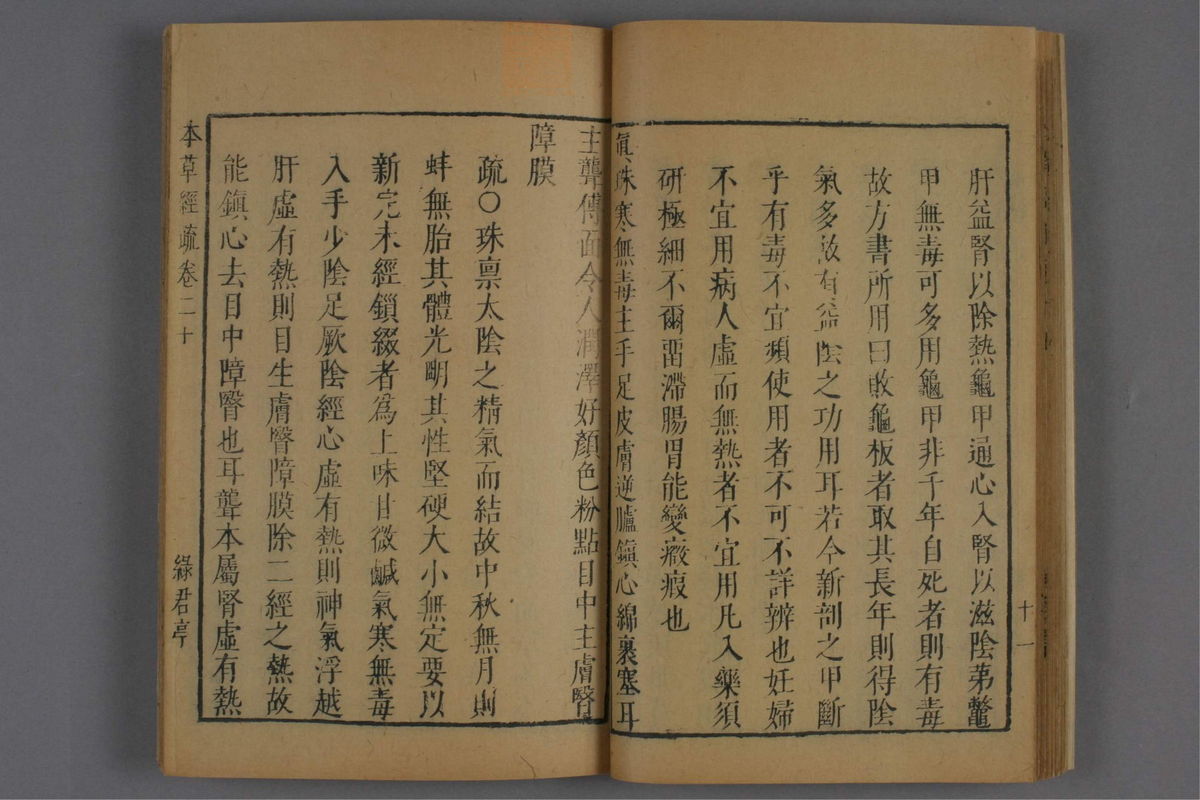 肝益腎以除熱龜甲通心入腎以滋陰苐鼈
甲無毒可多用龜甲非千年自死者則有毒
故方書所用曰敗龜板者取其長年則得陰
氣多故有益陰之功用耳若今新剖之甲斷
乎有毒不宜頻使用者不可不詳辨也妊婦
不宜用病人虛而無熱者不宜用凡入藥須
研極細不爾畱滯腸胃能變癥瘕也
真珠寒無毒主手足皮膚逆臚鎭心綿裹塞耳
主聾傅面令人潤澤好顏色粉點目中主膚瞖
障膜
疏○珠禀太陰之精氣而結故中秋無月則
蚌無胎其體光明其性堅硬大小無定要以
新完未經鎖綴者為上味甘微鹹氣寒無毒
入手少陰足厥陰經心虛有熱則神氣浮越
肝虛有熱則目生膚瞖障膜除二經之熱故
能鎭心去目中障瞖也耳聾本屬腎虛有熱
本草經疏卷二十
綠君亭
十一